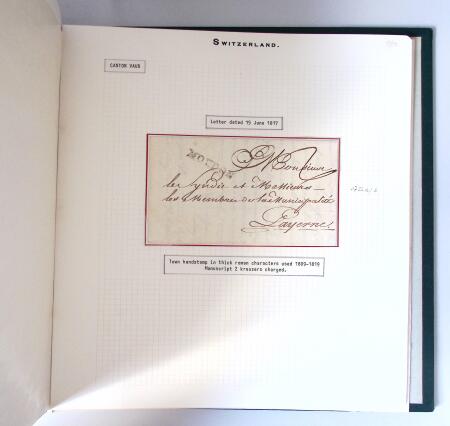 SWITZERLAND.
CANTON VAUD
Letter dated 15 June 1817
Monsieur
le Syndic et Messieurs
les Membres de la Municipalité
Payerne
Town handstamp in thick roman characters used 1809-1819
Manuscript 2 kreuzers charged.